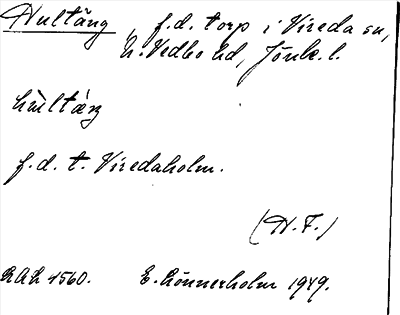 Hultäng, f.d. torp i Vireda sn,
N. Vedbo hd, Jönk. l.
f.d. t. Viredaholm.
(H. F.)
RAÄ 1560. E. Rönnerholm 1949.